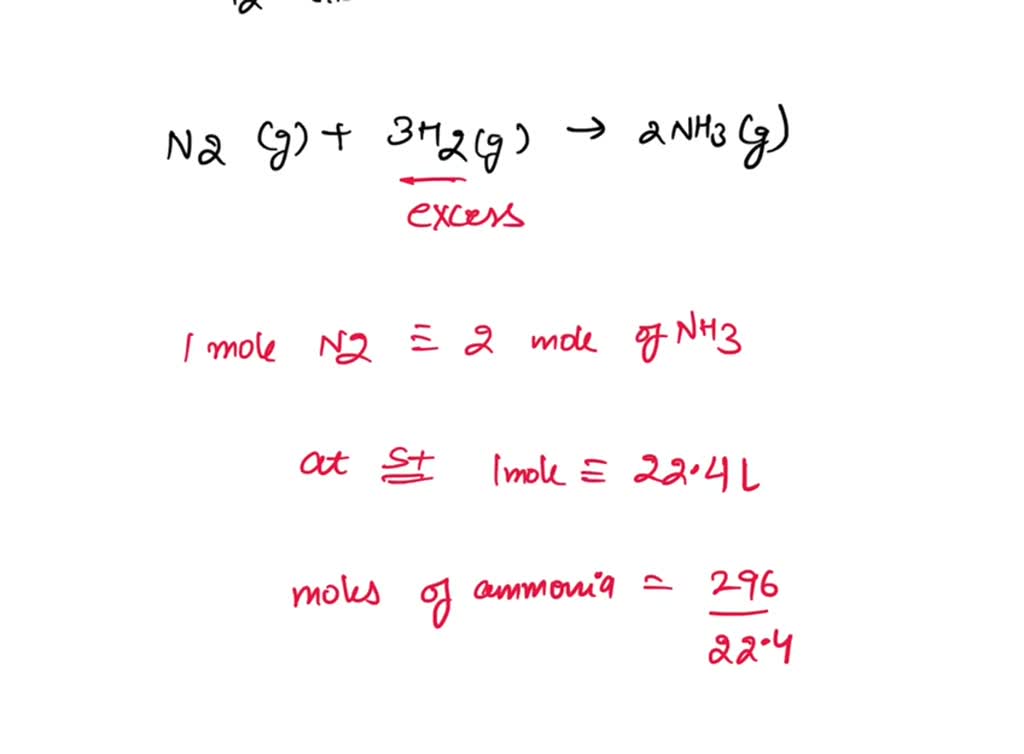 N2 (g) + 3H2(g) → 2NH3(g)
excess
1 mole N2 ≡ 2 mole of NH3
at st 1mole ≡ 22.4 L
moles of ammonia = 296
22.4